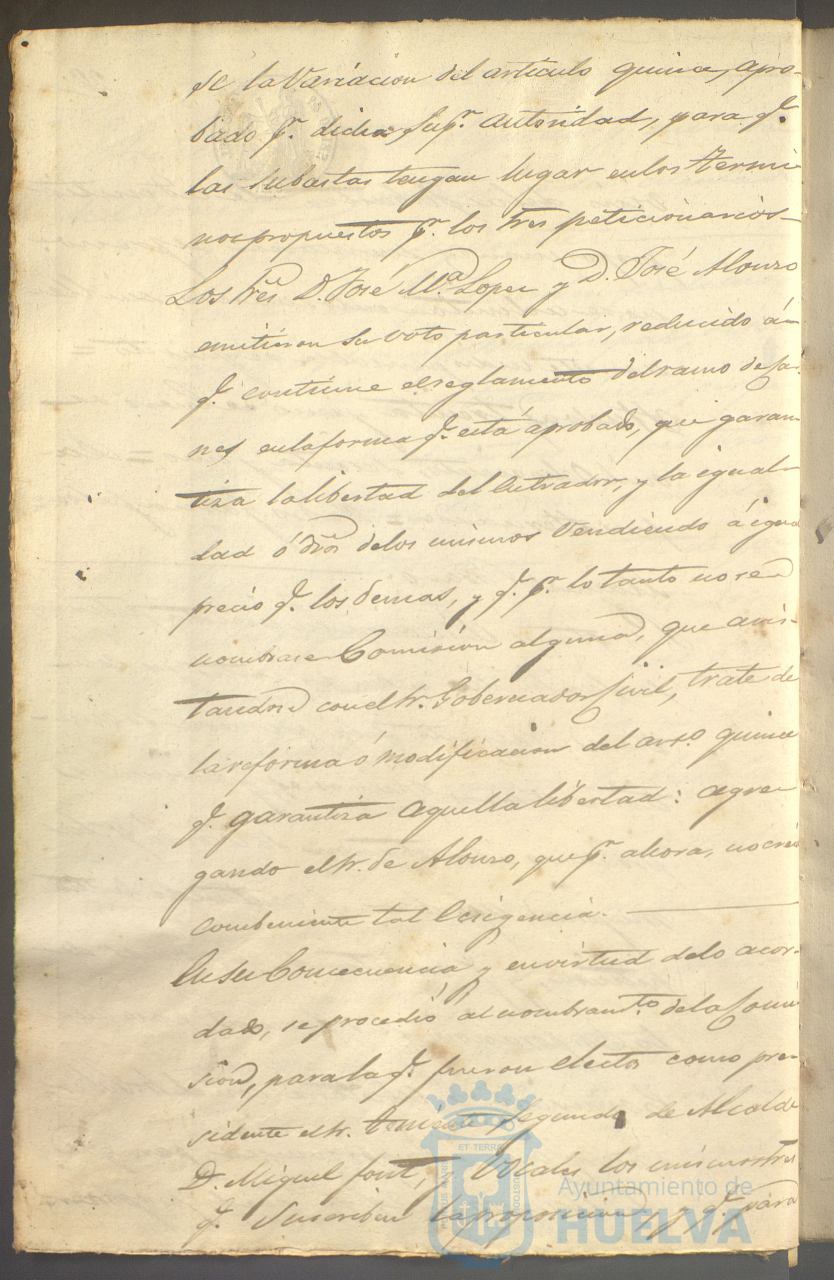 de la Variacion del articulo quince, apro-
bado pr. dicha Supr. autoridad, para qe.
las subastas tengan lugar en los termi-
nos propuestos pr. los tres peticionarios-
Los Sres. D. José Ma. Lopez y D. José Alonzo
emitieron su voto particular, reducido á
qe. contiene el reglamento del ramo de Car-
nes en la forma qe. está aprobado, que garan-
tiza la libertad del entrador, y la igual-
dad ó dros de los mismos vendiendo á igual
precio qe. los demas, y qe. pr. lo tanto no se
nombrase Comision alguna, que avis-
tandose con el Sr. Gobernador Civil, trate de
la reforma ó modificacion del arto. quince
qe. garantiza aquella libertad: agre-
gando el Sr. de Alonzo, que pr. ahora, no cree
combeniente tal exigencia.
En su Consecuencia y en virtud de lo acor-
dado, se procedió al nombramto. de la Comi-
sion, para la qe. fueron electos como pre-
sidente el Sr. teniente segundo de Alcalde
D. Miguel font, y Vocales los mismos tres
qe. Suscriben la proposicion, y qe. para
ET TERRÆ
Ayuntamiento de
HUELVA